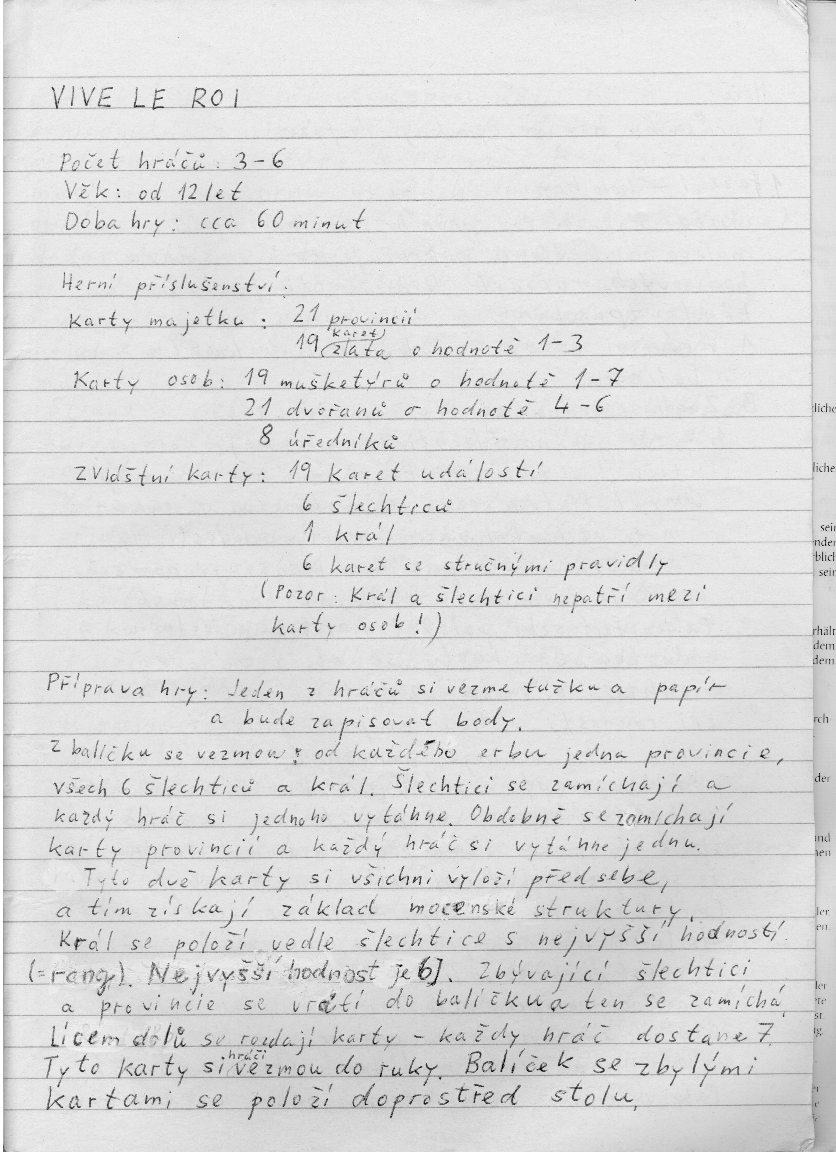 VIVE LE ROI
Počet hráčů: 3-6
Věk: od 12 let
Doba hry: cca 60 minut
Herní příslušenství:
Karty majetku: 21 provincií
karet
19 zlata o hodnotě 1-3
Karty osob: 19 mušketýrů o hodnotě 1-7
21 dvořanů o hodnotě 4-6
8 úředníků
Zvláštní karty: 19 karet událostí
6 šlechticů
1 král
6 karet se stručnými pravidly
(Pozor: Král a šlechtici nepatří mezi
karty osob!)
Příprava hry: Jeden z hráčů si vezme tužku a papír
a bude zapisovat body.
Z balíčku se vezmou: od každého erbu jedna provincie,
všech 6 šlechticů a král. Šlechtici se zamíchají a
každý hráč si jednoho vytáhne. Obdobně se zamíchají
karty provincií a každý hráč si vytáhne jednu.
Tyto dvě karty si všichni vyloží před sebe,
a tím získají základ mocenské struktury.
Král se položí vedle šlechtice s nejvyšší hodností.
(=rang). Nejvyšší hodnost je 6]. Zbývající šlechtici
a provincie se vrátí do balíčku a ten se zamíchá.
Lícem dolů se rozdají karty - každý hráč dostane 7.
hráči
Tyto karty si vezmou do ruky. Balíček se zbylými
kartami se položí doprostřed stolu.
liche
liche
sein
nden
rblich
sein
rhält
dem
dem
rch
der
und
nen
ler
en.
ler
ete
st.
ig.
er